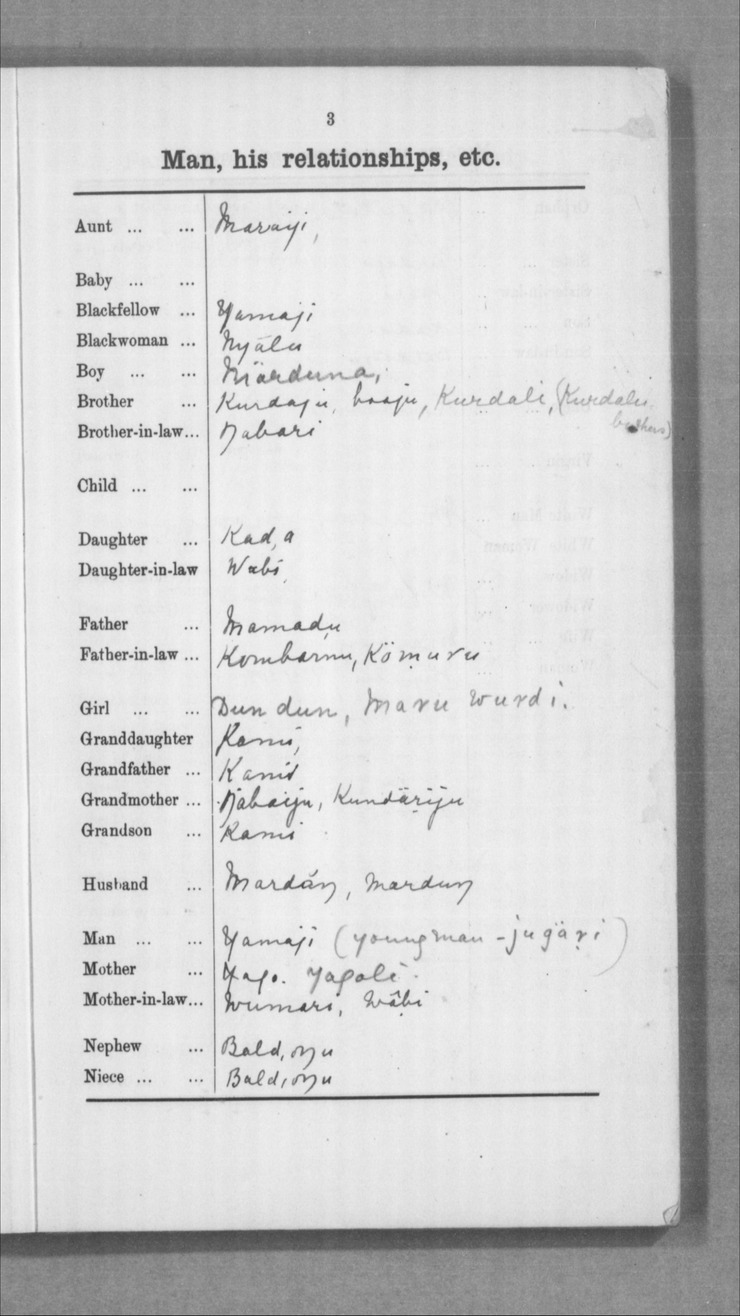 3
Man, his relationships, etc.
Aunt ... ... Maraiji,
Baby ... ...
Blackfellow ... Yamaji
Blackwoman ... Nyālu
Boy ... ... Mārduna,
Brother ... Kurdaju, baaju, Kurdali, (Kurdalu brothers)
Brother-in-law... ŋabari
Child ... ...
Daughter ... Kad,a
Daughter-in-law Wabi,
Father ... Mamadu
Father-in-law ... Kombarnu, Kömuru
Girl ... ... Dun dun, Maru wurdi.
Granddaughter Kami,
Grandfather ... Kami
Grandmother ... ŋabaiju, Kundäriju
Grandson ... Kami
Husband ... Mardáŋ, marduŋ
Man ... ... Yamaji (youngman - jugäri)
Mother ... Yago. Yagoli
Mother-in-law... Wumari, Wâbi
Nephew ... Bald,oŋu
Niece ... ... Bald,oŋu